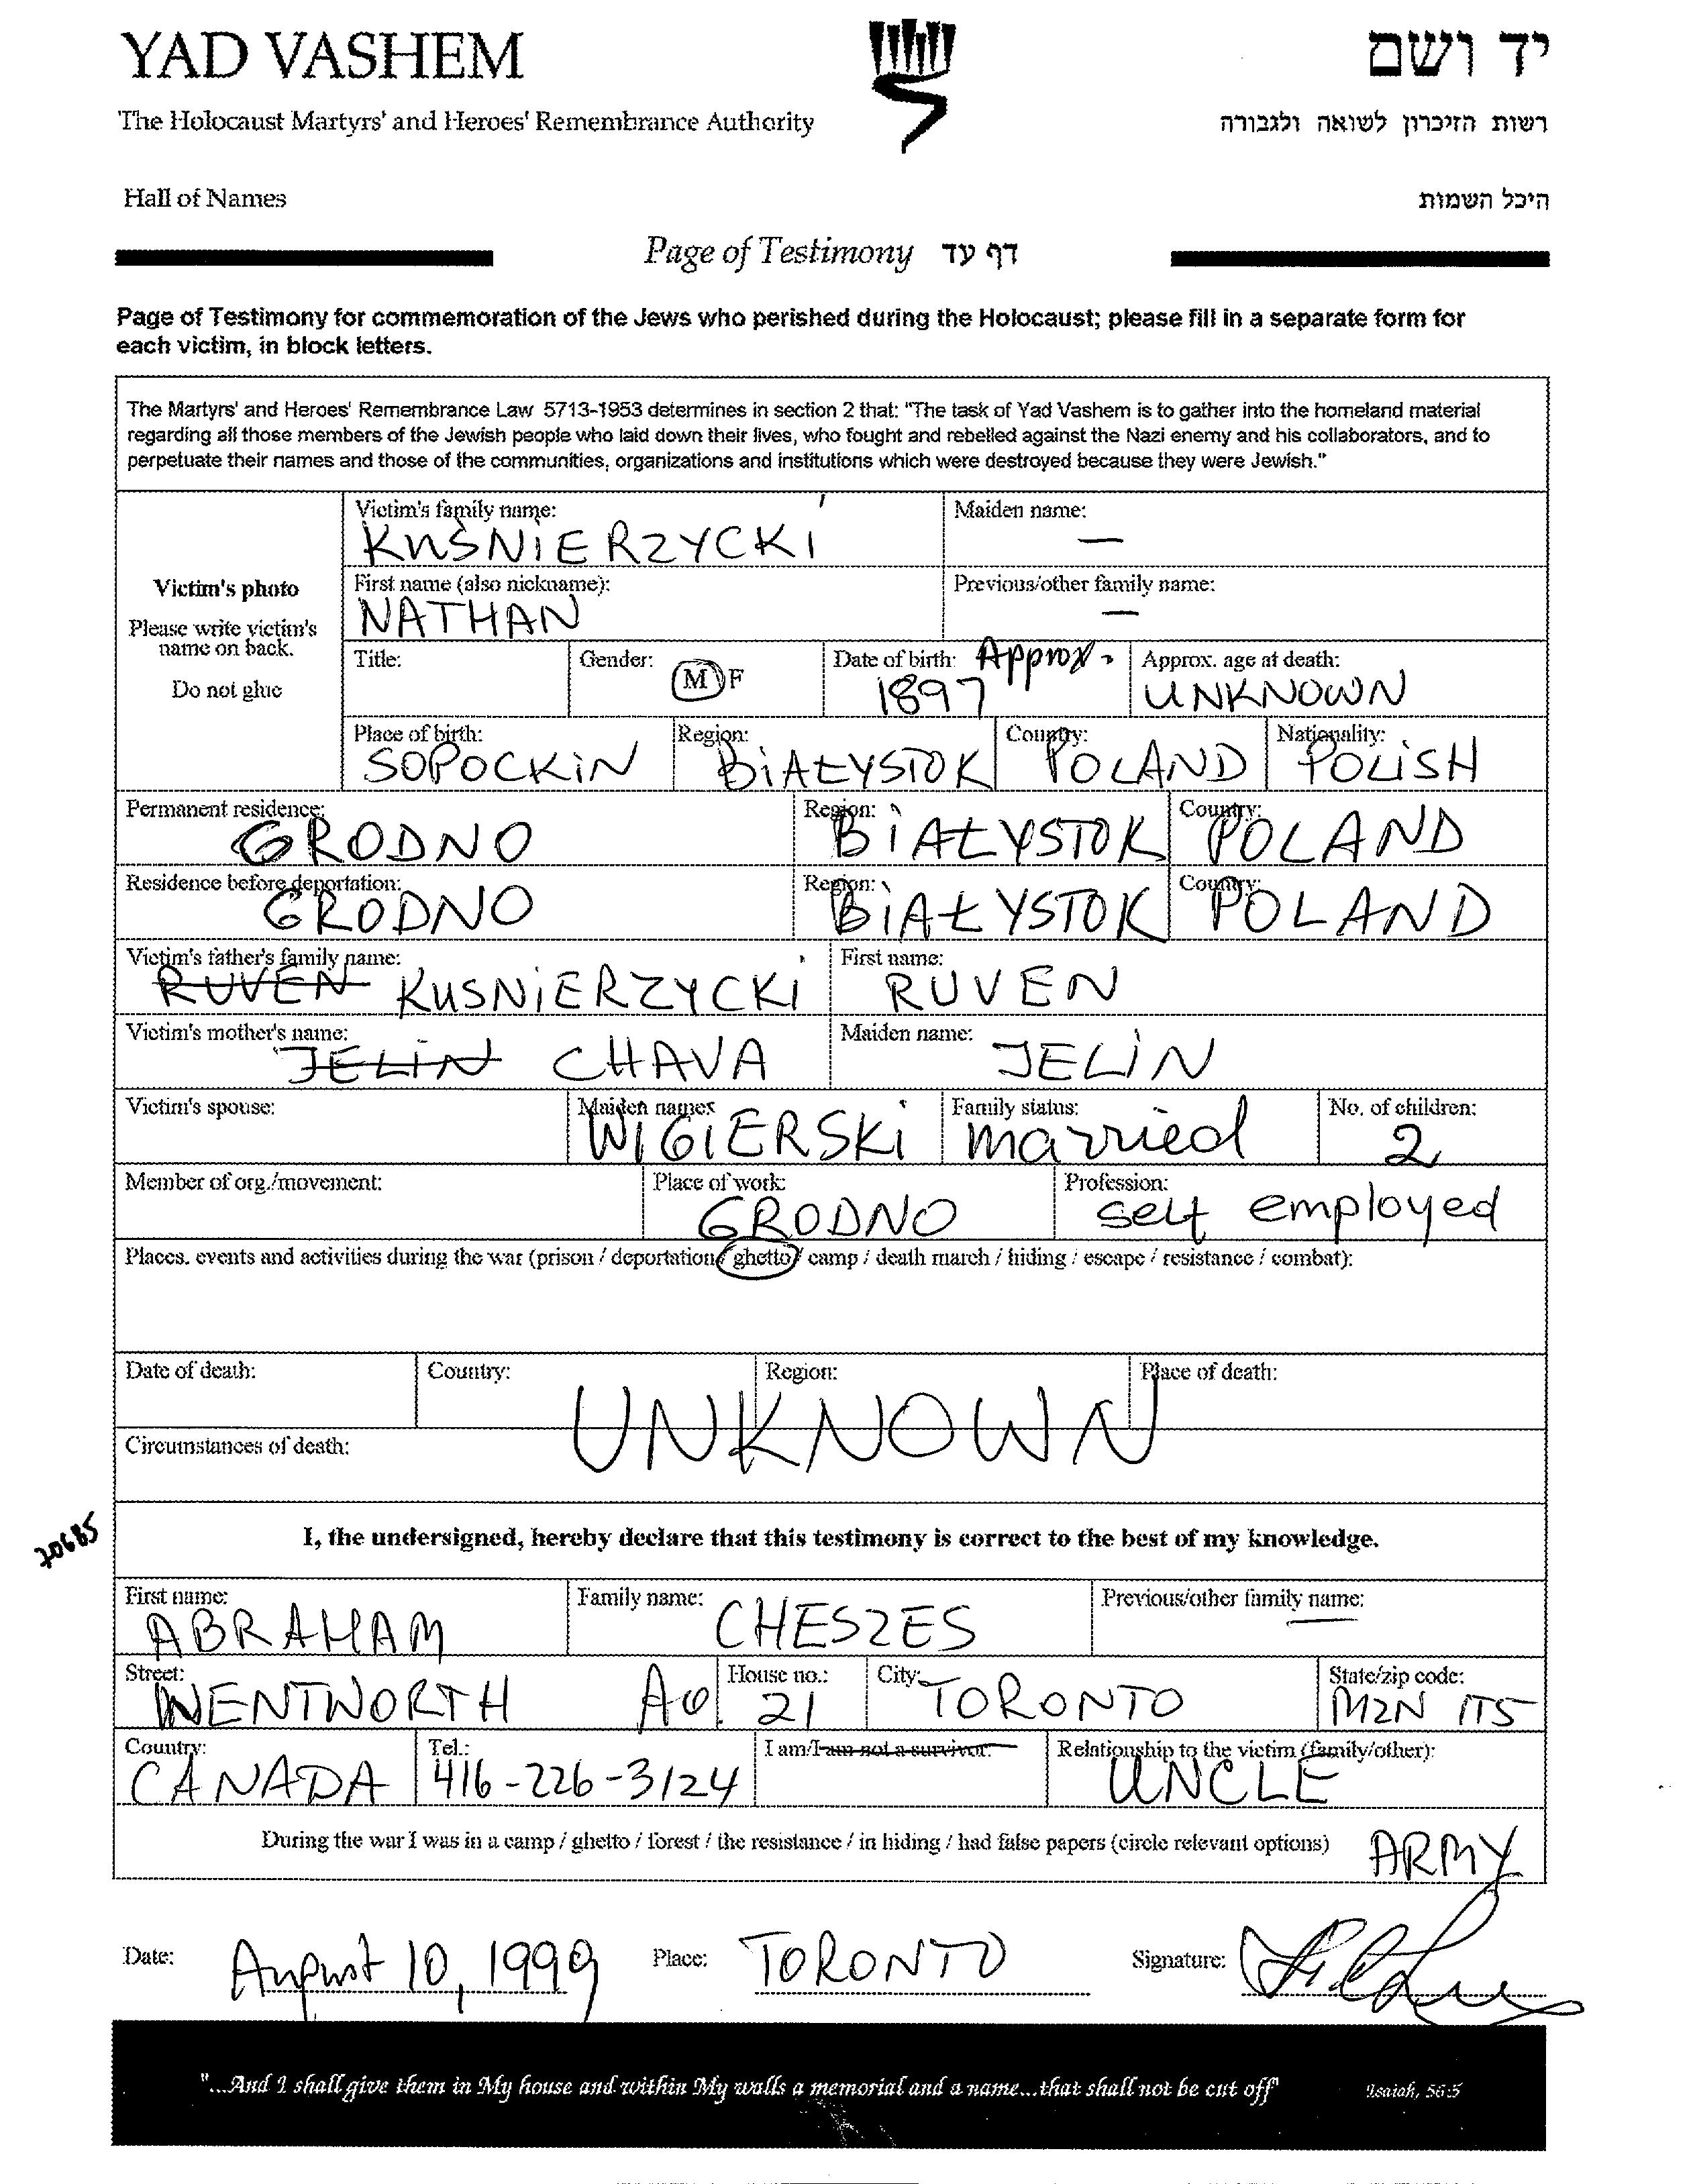 YAD VASHEM
יד ושם
The Holocaust Martyrs' and Heroes' Remembrance Authority
רשות הזיכרון לשואה ולגבורה
Hall of Names
היכל השמות
Page of Testimony דף עד
Page of Testimony for commemoration of the Jews who perished during the Holocaust; please fill in a separate form for
each victim, in block letters.
The Martyrs' and Heroes' Remembrance Law 5713-1953 determines in section 2 that: "The task of Yad Vashem is to gather into the homeland material
regarding all those members of the Jewish people who laid down their lives, who fought and rebelled against the Nazi enemy and his collaborators, and to
perpetuate their names and those of the communities, organizations and institutions which were destroyed because they were Jewish."
Victim's photo
Please write victim's
name on back.
Do not glue
Victim's family name: Maiden name:
KUŚNiERZYCKi —
First name (also nickname): Previous/other family name:
NATHAN —
Title: Gender: M F Date of birth: Approx. Approx. age at death:
1897 UNKNOWN
Place of birth: Region: Country: Nationality:
SOPOCKiN BiAŁYSTOK POLAND POLiSH
Permanent residence: Region: Country:
GRODNO BiAŁYSTOK POLAND
Residence before deportation: Region: Country:
GRODNO BiAŁYSTOK POLAND
Victim's father's family name: First name:
RUVEN KUSNiERZYCKi RUVEN
Victim's mother's name: Maiden name:
JELiN CHAVA JELiN
Victim's spouse: Maiden name: Family status: No. of children:
WIGIERSKi married 2
Member of org./movement: Place of work: Profession:
GRODNO self employed
Places, events and activities during the war (prison / deportation / ghetto / camp / death march / hiding / escape / resistance / combat):
Date of death: Country: Region: Place of death:
UNKNOWN
Circumstances of death:
70685
I, the undersigned, hereby declare that this testimony is correct to the best of my knowledge.
First name: Family name: Previous/other family name:
ABRAHAM CHESZES —
Street: House no.: City: State/zip code:
WENTWORTH Av. 21 TORONTO M2N 1T5
Country: Tel.: I am/I am not a survivor. Relationship to the victim (family/other):
CANADA 416-226-3124 UNCLE
During the war I was in a camp / ghetto / forest / the resistance / in hiding / had false papers (circle relevant options) ARMY
Date: August 10, 1999 Place: TORONTO Signature:
"...And I shall give them in My house and within My walls a memorial and a name...that shall not be cut off" Isaiah, 56:5